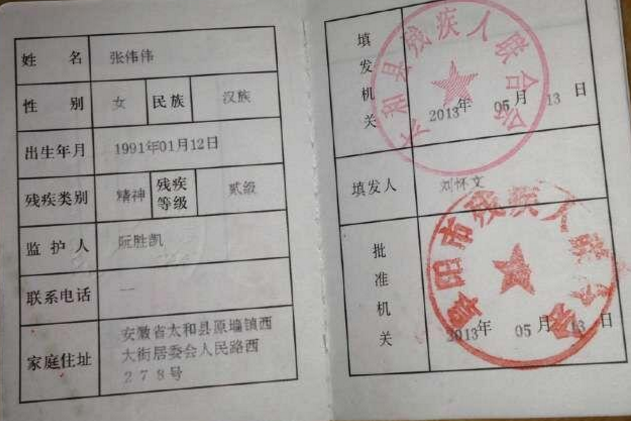 姓名 张伟伟
性别 女 民族 汉族
出生年月 1991年01月12日
残疾类别 精神 残疾等级 贰级
监护人 阮胜凯
联系电话 一
家庭住址 安徽省太和县原墙镇西
大街居委会人民路西
278号
填发机关 太和县残疾人联合会
2013年 05月 13日
填发人 刘怀文
批准机关 阜阳市残疾人联合会
2013年 05月 13日